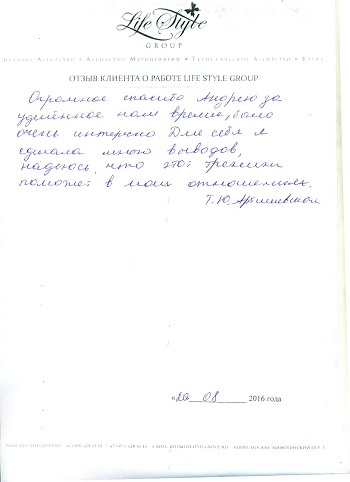 Life Style
GROUP
Агентство Мероприятий • Туристическое Агентство •
ОТЗЫВ КЛИЕНТА О РАБОТЕ LIFE STYLE GROUP
Огромное спасибо Андрею за
уделённое нам время, было
очень интересно. Для себя я
сделала много выводов,
надеюсь, что этот тренинг
поможет в моих отношениях.
Т.Ю.
«20 08 2016 года